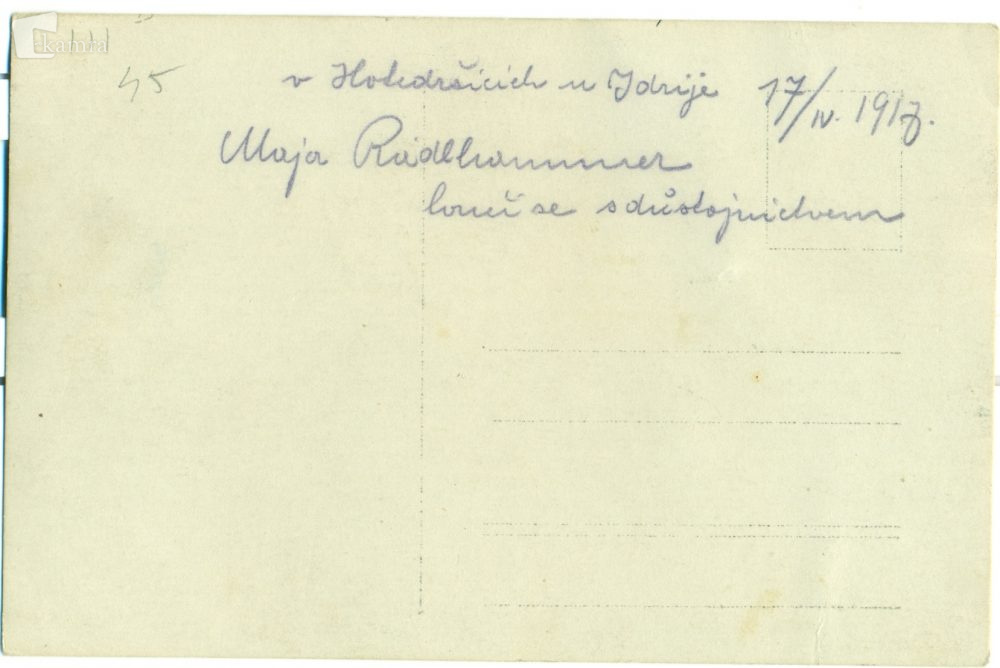 kamra
45
v Hotedršicích u Idrije 17/IV. 1917.
Maja Radlhammer
loučí se s důstojnictvem